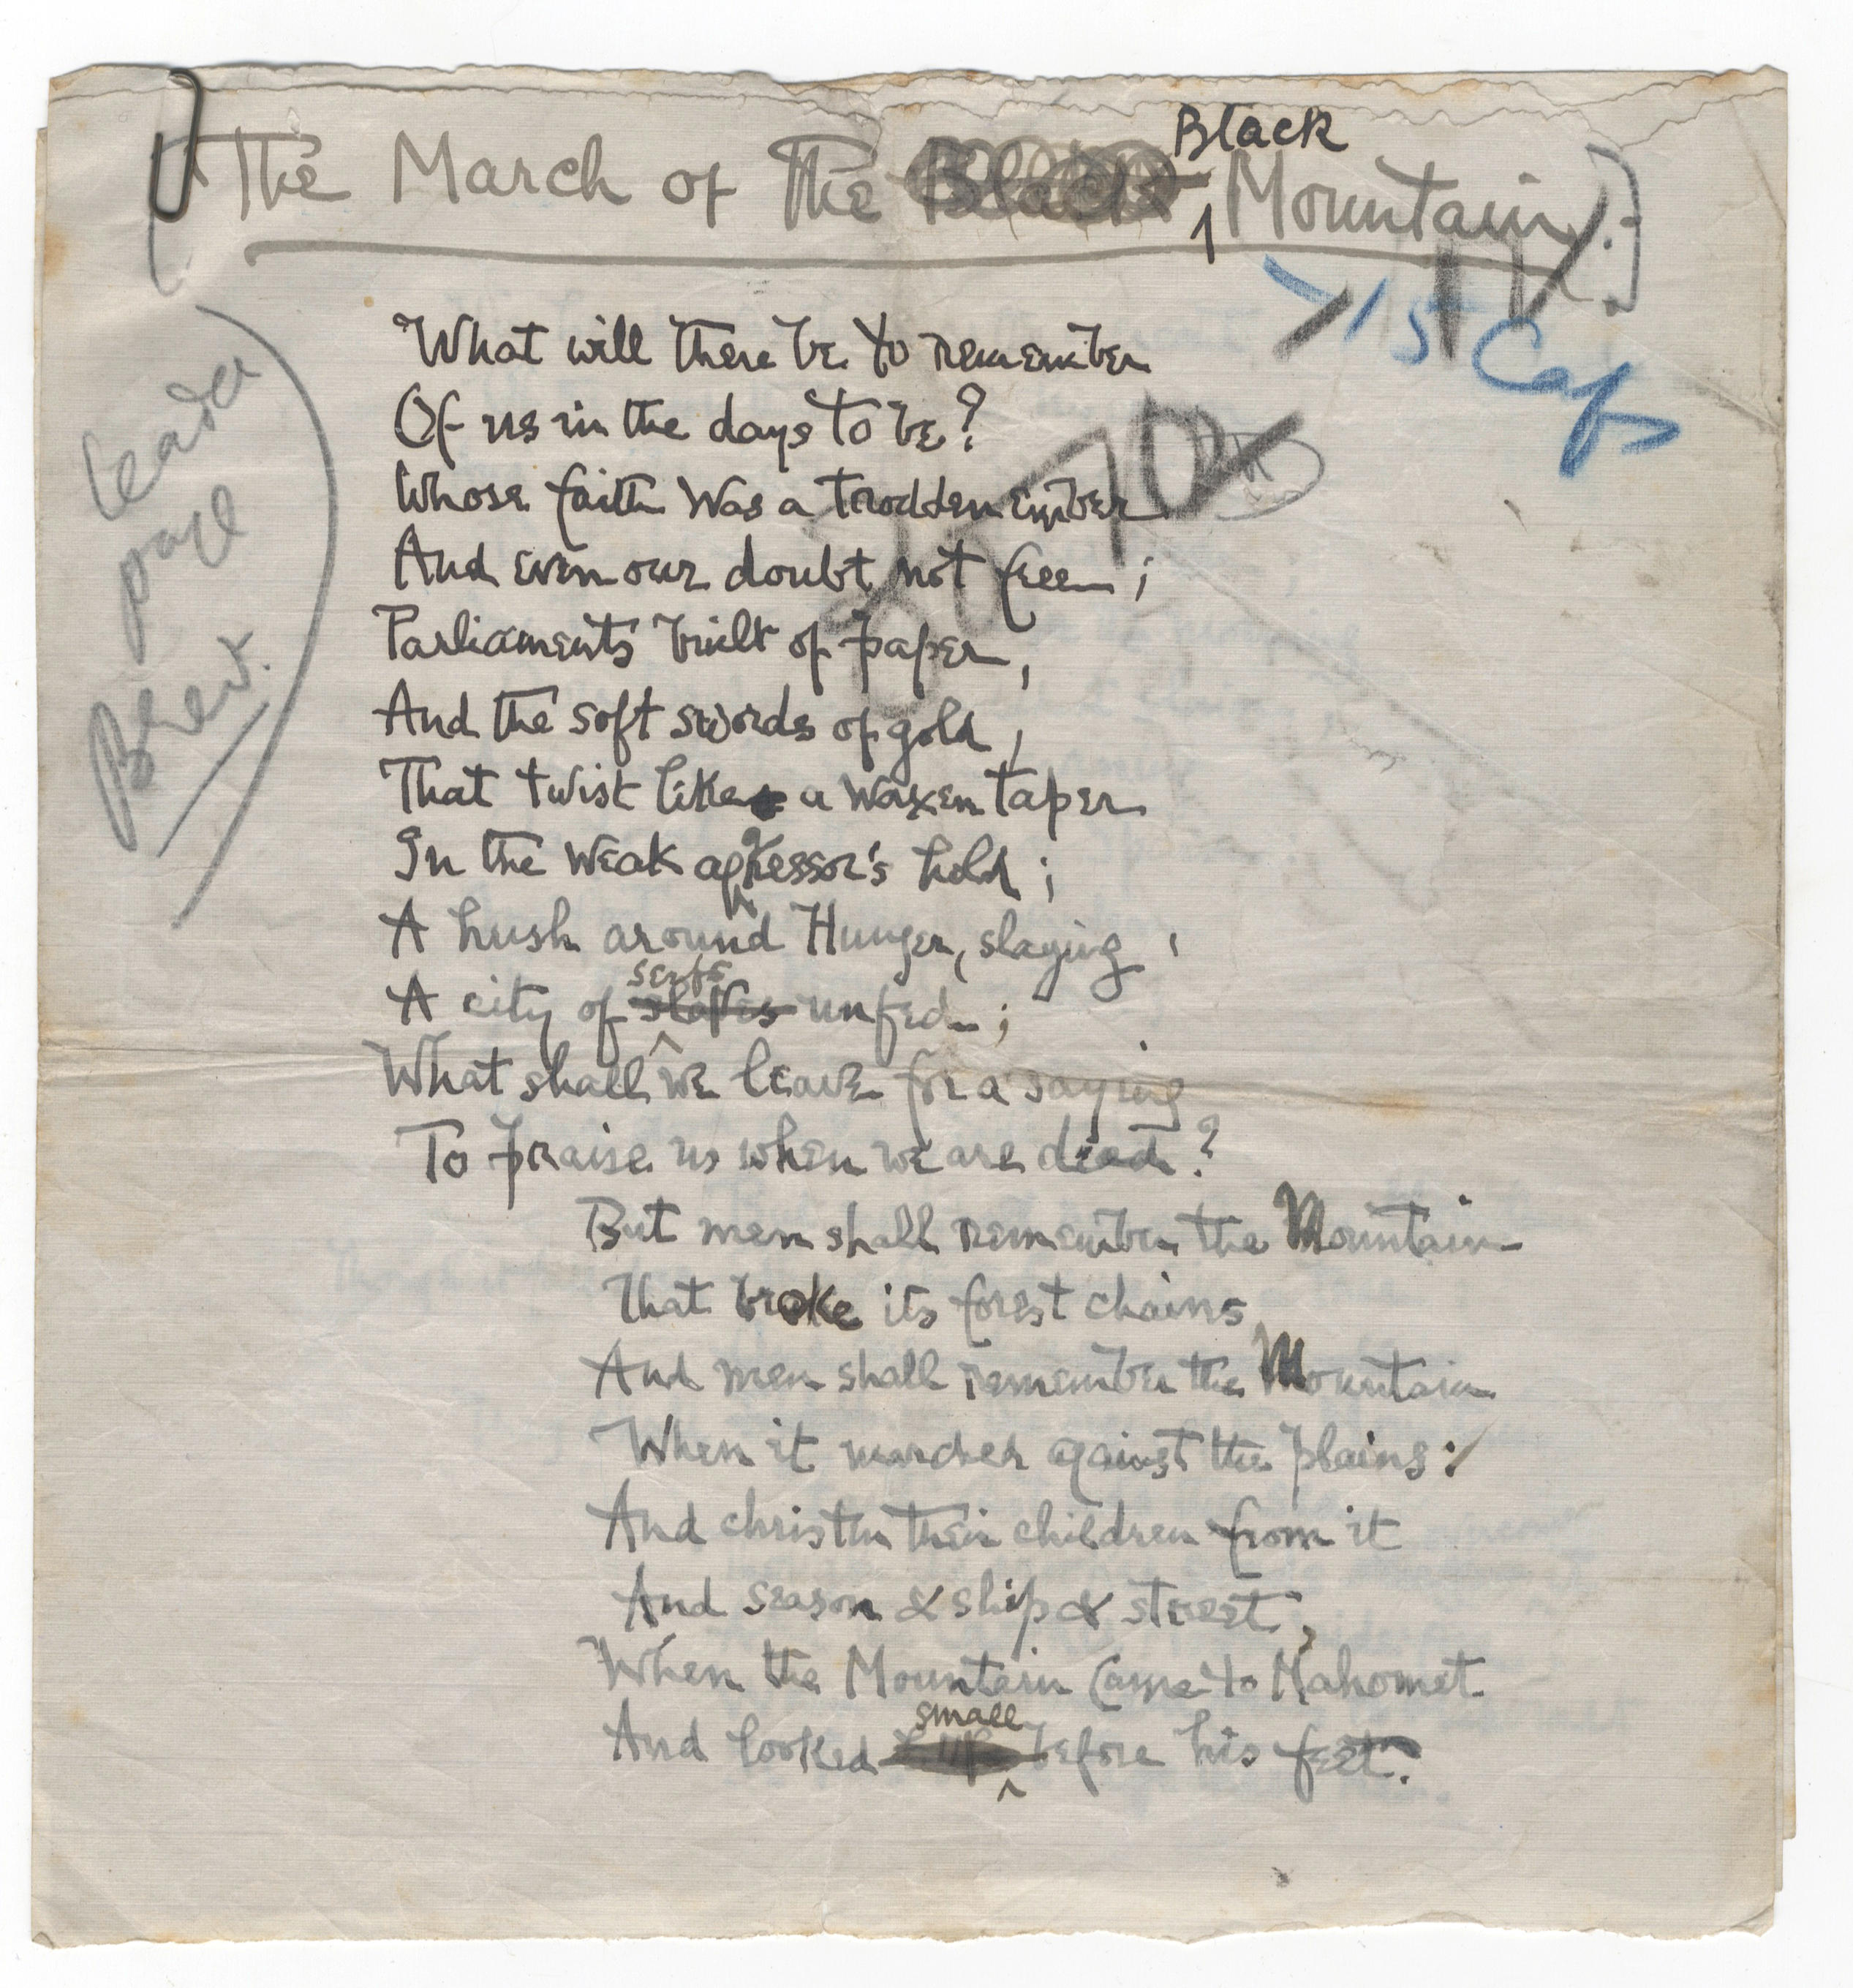 The March of The Black Mountain.
Black
15 Caps
leader
page
Brev.
What will there be to remember
Of us in the days to be?
Whose faith was a trodden ember
And even our doubt not free;
Parliaments built of paper,
And the soft swords of gold,
That twist like a waxen taper
In the weak aggressor's hold;
A hush around Hunger, slaying
serfs
A city of slaves unfed;
What shall we leave for a saying
To praise us when we are dead?
But men shall remember the Mountain
That broke its forest chains
And men shall remember the Mountain
When it marched against the plains:
And christen their children from it
And season & ship & street,
When the Mountain came to Mahomet
small
And looked before his feet.